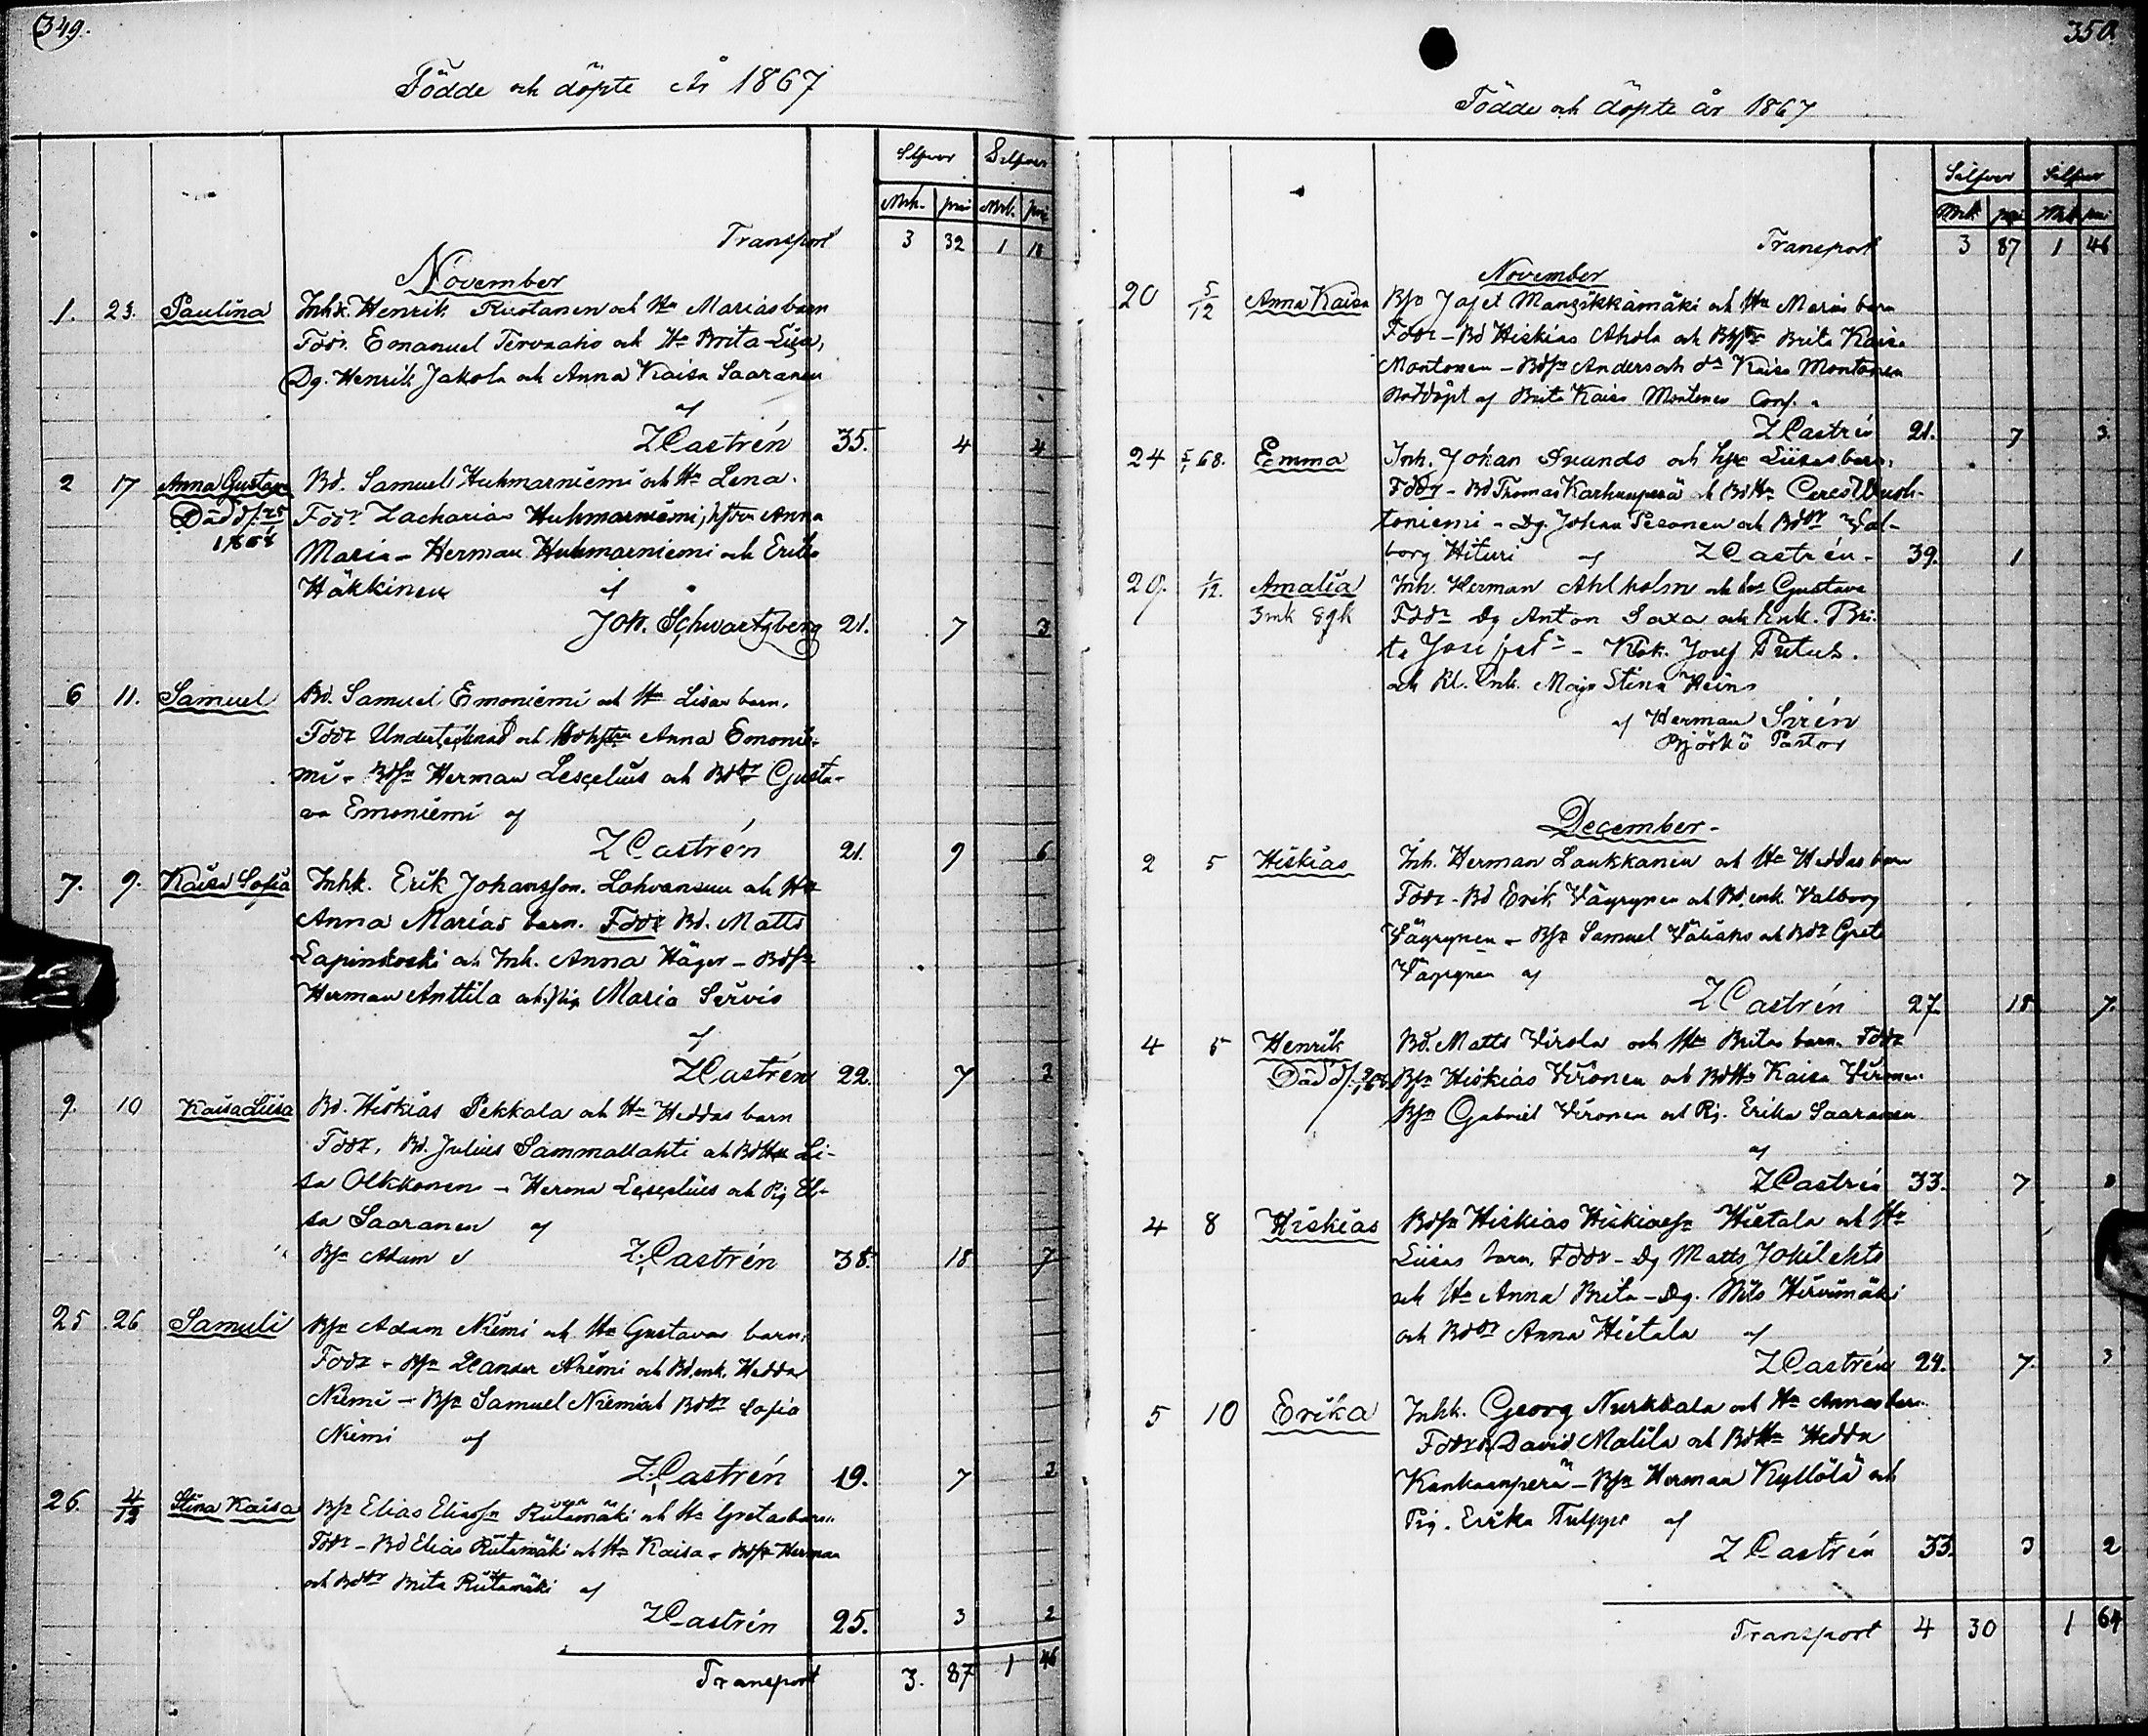 349.
Födde och döpte År 1867
Silfver Silfver
Mrk. pni Mrk. pni
Transport 3 32 1 18
November
1. 23. Paulina Inhk. Henrik Ruotanen och Hu Marias barn
Fddr. Emanuel Tervaaho och Hu Brita Lisa,
Dg. Henrik Jakola och Anna Kaisa Saaranen
af
ZCastrén 35. 4 4
2 17 Anna Gustava Bd. Samuel Huhmarniemi och Hu Lena.
Död d/ 25 Fddr Zacharias Huhmarniemi, hstru Anna
1868 Maria – Herman Huhmarniemi och Erika
Häkkinen af
Joh. Schwartzberg 21. 7 3
6 11. Samuel Bd. Samuel Emoniemi och Hu Lisas barn.
Fddr Undertecknad och Anna Emonie-
mi – Bdsn Herman Lescelius och Bddr Gusta-
va Emoniemi af
ZCastrén 21. 9 6
7. 9. Kaisa Sofia Inhk. Erik Johansson Lohvansuu och Hu
Anna Marias barn. Fddr Bd. Matts
Lapinkoski och Inh. Anna Häger – Bdsn
Herman Anttila och Pig Maria Servio
af
ZCastrén 22. 7 3
9. 10 Kaisa Liisa Bd. Hiskias Pekkala och Hu Heddas barn
Fddr. Bd. Julius Sammallahti och BdHu Li-
sa Olkkonen – Herman Lescelius och Pig El-
sa Saaranen af
Bsn Adam Z.Castrén 38. 18 7
25 26 Samuli Bsn Adam Niemi och Hu Gustavas barn.
Fddr – Bsn Niemi och Bd.enk. Hedda
Niemi – Bsn Samuel Niemi och Bddr Sofia
Niemi af
Z.Castrén 19. 7 3
26. 4/12 Stina Kaisa Bsn Elias Eliassn Riitamäki och Hu Gretas barn.
Fddr – Bd Elias Riitamäki och Hu Kaisa – Bdsn Herman
och Bddr Brita Riitamäki af
ZCastrén 25. 3 2
Transport 3. 87 1 46
350.
Födde och döpte år 1867
Silfver Silfver
Mrk pni Mrk pni
Transport 3 87 1 46
November
20 5/12 Anna Kaisa Bsn Jafet Mansikkamäki och Hu Marias barn
Fddr – Bd Hiskias Ahola och Brita Kaisa
Montonen – Bdsn Anders och dr Kaisa Montonen
Nöddöpt af Brita Kaisa Montonen Conf. a
ZCastrén 21. 7 3.
24 68. Emma Inh. Johan och Liisas barn.
Fddr – Bd Thomas Karhunperä och BdHu Ceres
toniemi – Dg. Johan Pesonen och Bddr Val-
borg Hituri af ZCastrén – 39. 1
29. 1/12. Amalia Inh. Herman Ahlholm och Gustava
3mk 8gk Fddr Dg Anton Saxa och Enk. Bri-
ta – Josef
och Kl. Enk. Maja Stina Heino
af Herman Sirén
Björkö Pastor
December –
2 5 Hiskias Inh. Herman Laukkanen och Hu Heddas barn
Fddr – Bd Erik Väyrynen och Bd.enk. Valborg
Väyrynen – Bsn Samuel Väliaho och Bddr Greta
Väyrynen af
ZCastrén 27. 18 7.
4 5 Henrik Bd. Matts Virola och Hu Britas barn. Fddr
Död d/ Bsn Hiskias Vironen och BdHu Kaisa Vironen
Bsn Gabriel Vironen och Pig. Erika Saaranen
af
ZCastrén 33. 7
4 8 Hiskias Bdsn Hiskias Hiskiassn Hietala och Hu
Liisas barn. Fddr – Dg Matts Jokilehto
och Hu Anna Brita – Dg. Nils Hirvimäki
och Bddr Anna Hietala af
ZCastrén 24. 7. 3
5 10 Erika Inhk. Georg Nurkkala och Hu Annas barn.
Fddr David Matila och BdHu Hedda
Kankaanperä – Bsn Herman Kyllölä och
Pig. Erika Tulppo af
ZCastrén 33. 3 2
Transport 4 30 1 64